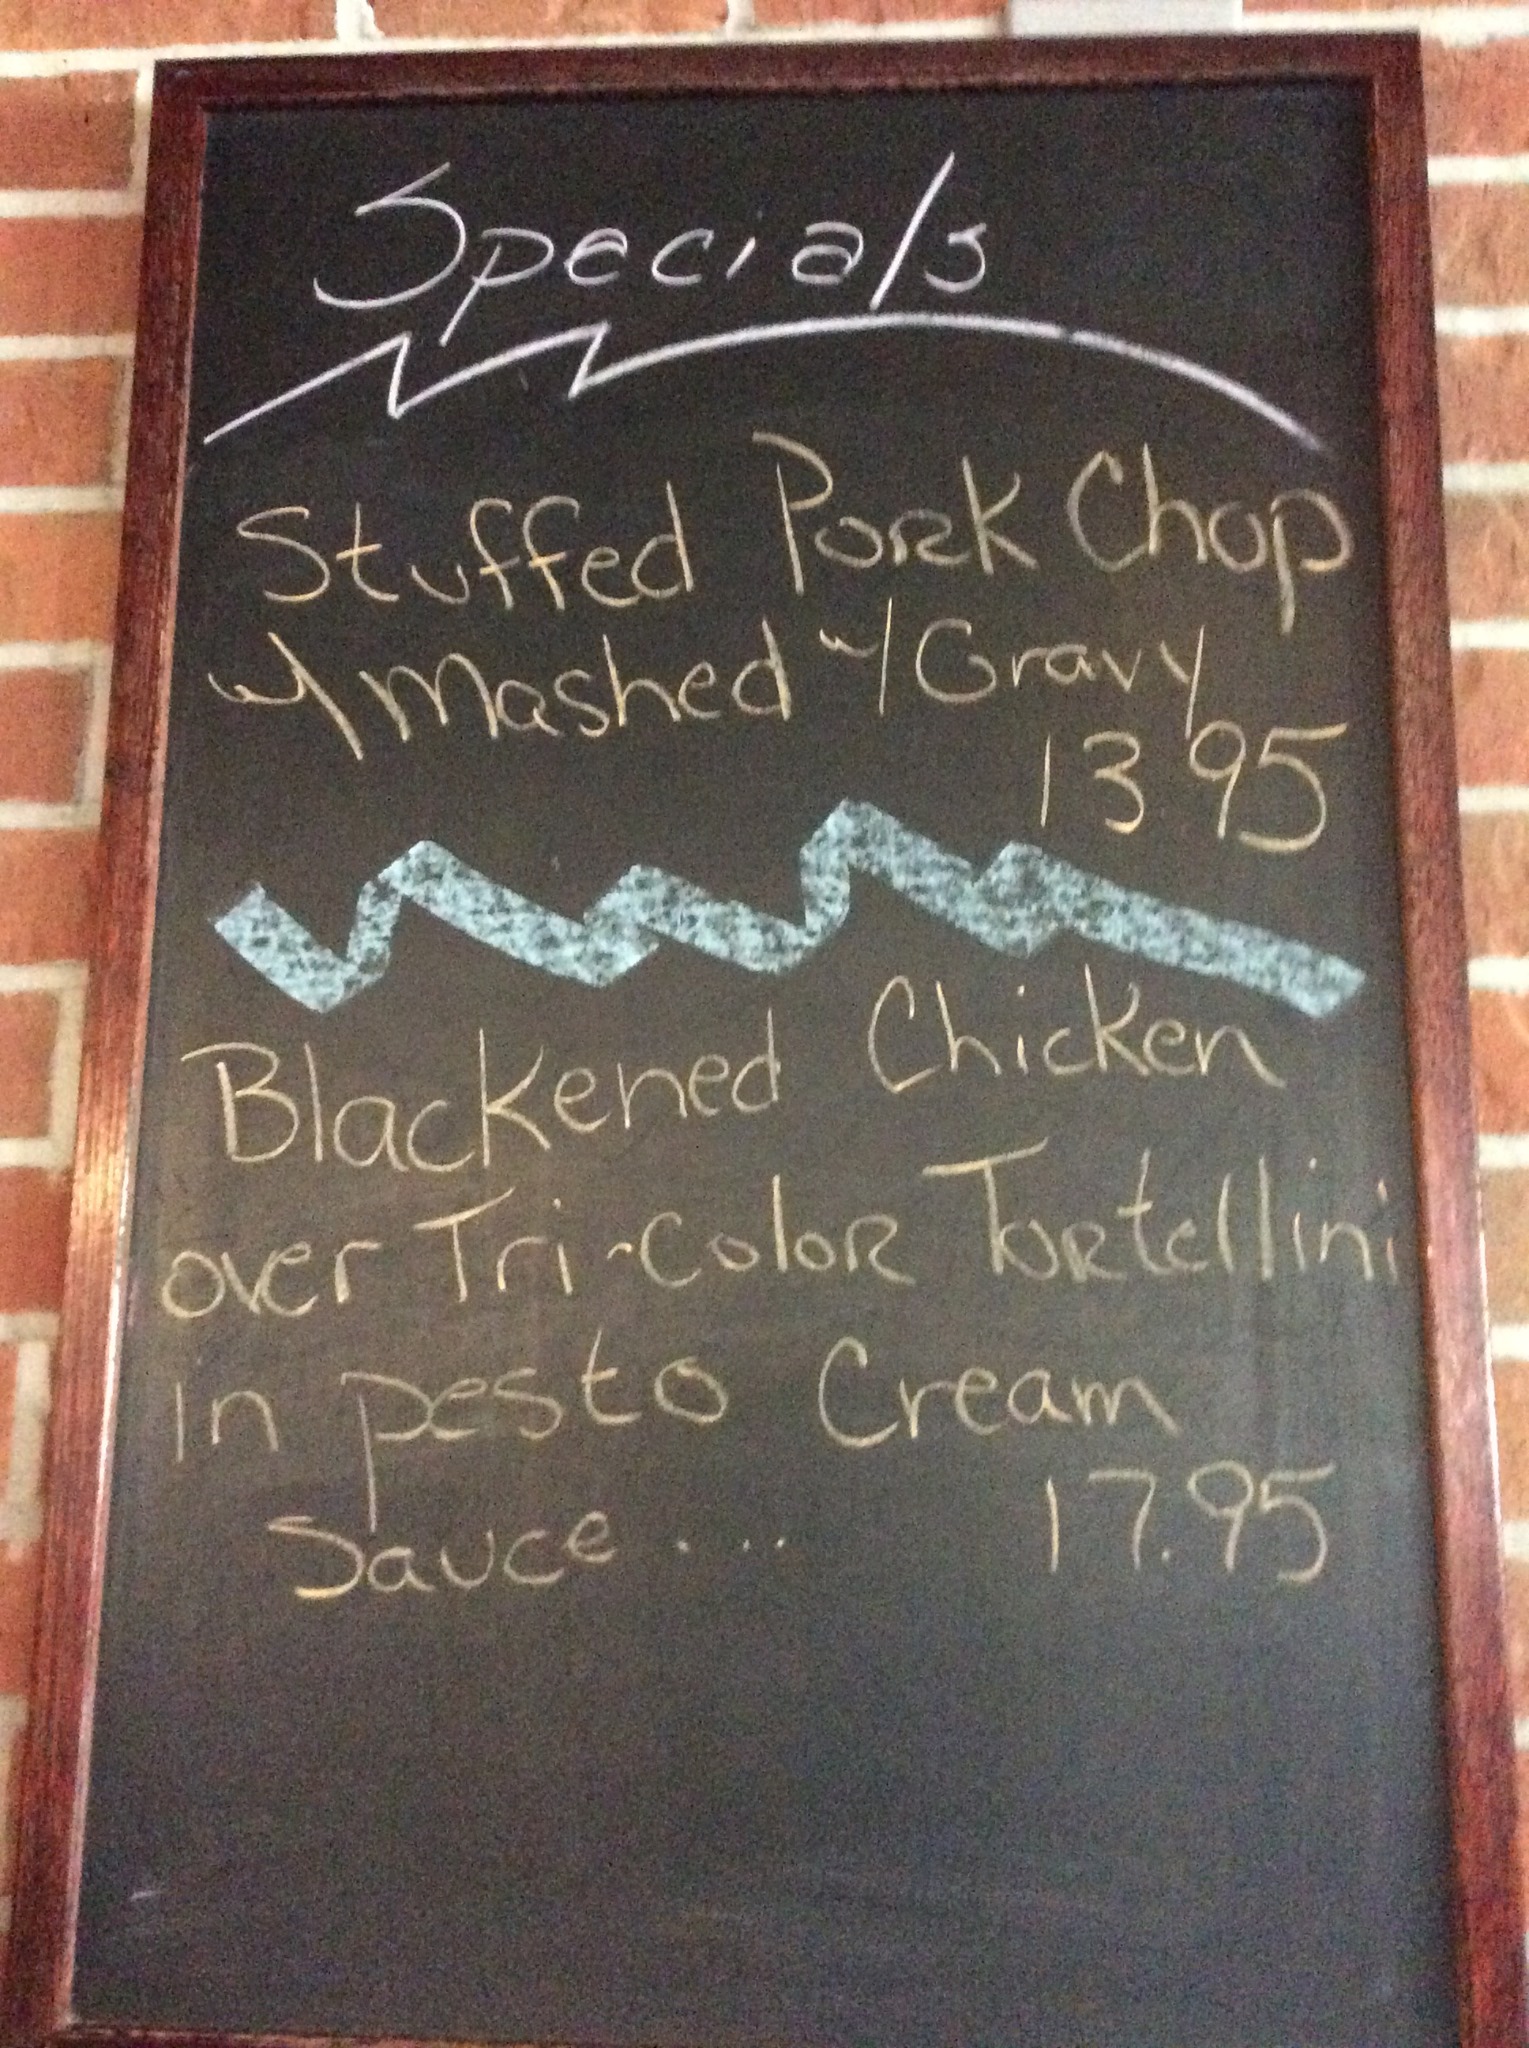 Specials
Stuffed Pork Chop
w/ Mashed w/ Gravy
13.95
Blackened Chicken
over Tri-Color Tortellini
in pesto Cream
Sauce .... 17.95